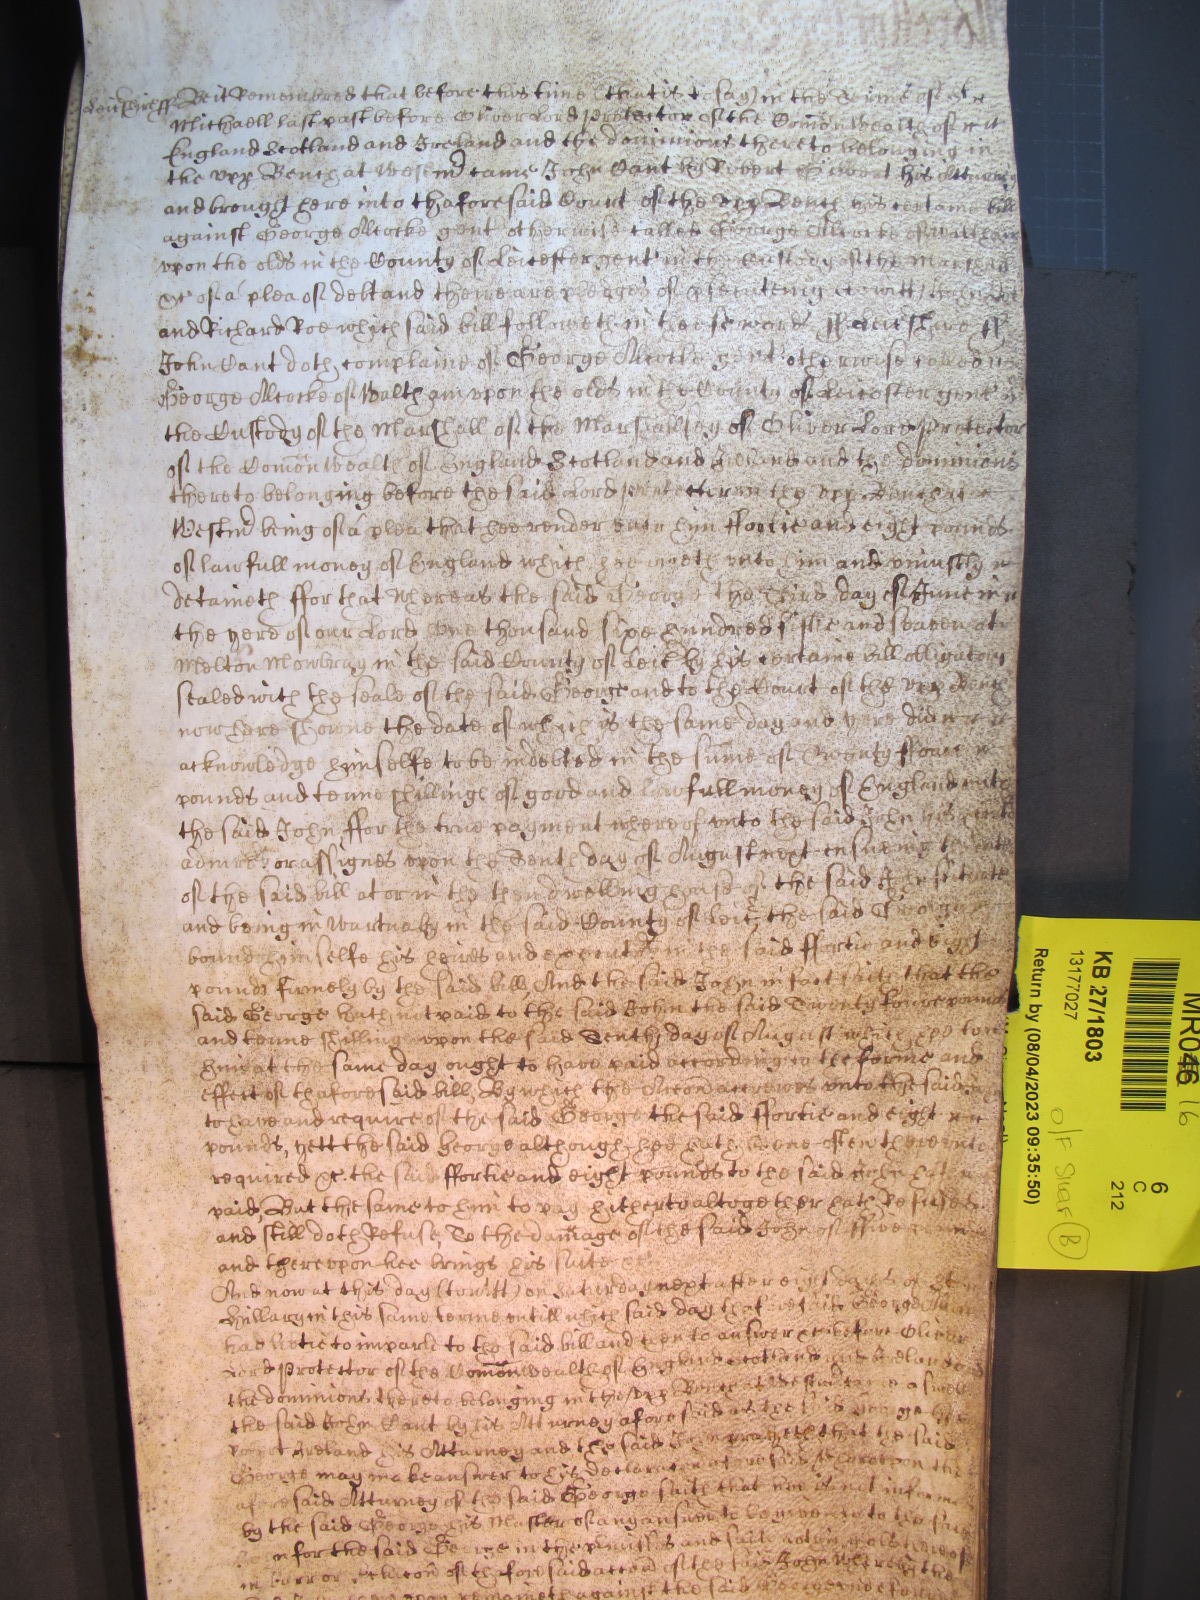 Leicestress Be it Remembred that before this time (that is to say) in the Terme of St
Michaell last past before Oliver Lord Protector of the Comon Wealth of
England Scotland and Ireland and the dominions thereto belonging in
the vpp Bench at Westmr came John Cant by Robert his Atturney
and brought here into thaforesaid Court of the vpp Bench his certaine bill
against George Alcocke gent otherwise called George Alcocke of Waltham
vpon the olds in the County of Leicester gent in the Custody of the Marshall
&c of a plea of debt and there are pledges of prsecuteing (towitt) John Doe
and Richard Roe which said bill followeth in these words ss Leicestress
John Cant doth complaine of George Alcocke gent otherwise called
George Alcocke of Waltham vpon the olds in the County of Leicester gent
the Custody of the Marshall of the Marshalsey of Oliver Lord Protector
of the Comon Wealth of England Scotland and Ireland and the dominions
thereto belonging before the said Lord protector in the vpp Bench att
Westmr being of a plea that hee render vnto him ffortie and eight pounds
of lawfull money of England which hee oweth vnto him and vniustly
detaineth ffor that Whereas the said George the third day of June in
the yere of our Lord One thousand sixe hundred fiftie and seaven att
Melton Mowbray in the said County of Leic by his certaine bill obligatory
sealed with the seale of the said George and to the Court of the vpp Bench
now here showne the date of which is the same day and yere did
acknowledge himselfe to be indebted in the sume of Twenty ffower
pounds and tenne shillings of good and lawfull money of England vnto
the said John ffor the true payment whereof vnto the said John his
admrs or assignes vpon the Tenth day of August next ensueing the date
of the said bill at or in the then dwelling house of the said John scituate
and being in Wartnaby in the said County of Leic, the said George
bound himselfe his heires and executors in the said ffortie and eight
pounds firmely by the said bill, And the said John in fact saith that the
said George hath not paid to the said John the said Twenty fower pounds
and tenne shillings vpon the said Tenth day of August which hee to
him at the same day ought to have paid according to the forme and
effect of thaforesaid bill, By which the Accon accrewes vnto the said John
to have and require of the said George the said ffortie and eight
pounds, yett the said George although hee hath beene often therevnto
required &c the said ffortie and eight pounds to the said John hath
paid, But the same to him to pay hitherto altogether hath Refused
and still doth Refuse, To the damage of the said John of ffive pounds
and therevpon hee brings his suite &c
And now at this day (towitt) on Saturday next after eight dayes of St
Hillary in this same terme vntill which said day thaforesaid George
had libtie to imparle to the said bill and then to answer &c before Oliver
Lord Protector of the Comon Wealth of England Scotland and Ireland and
the dominions thereto belonging in the vpp Bench at Westmr came aswell
the said John Cant by his Atturney aforesaid as the said George by
Ireland his Atturney and the said John prayeth that the said
George may make answer to his declaracon aforesaid Wherevpon the
aforesaid Atturney of the said George saith that hee is not informed
by the said George his Master of any answer to be given to the said
for the said George in the premisses and saith nothing els thereof
in barr or of thaforesaid accon of the said John Whereby the
remaineth against the said George
MR046
6
C
212
KB 27/1803
13177027
Return by (08/04/2023 09:35:50)
O/F Shelf B
16